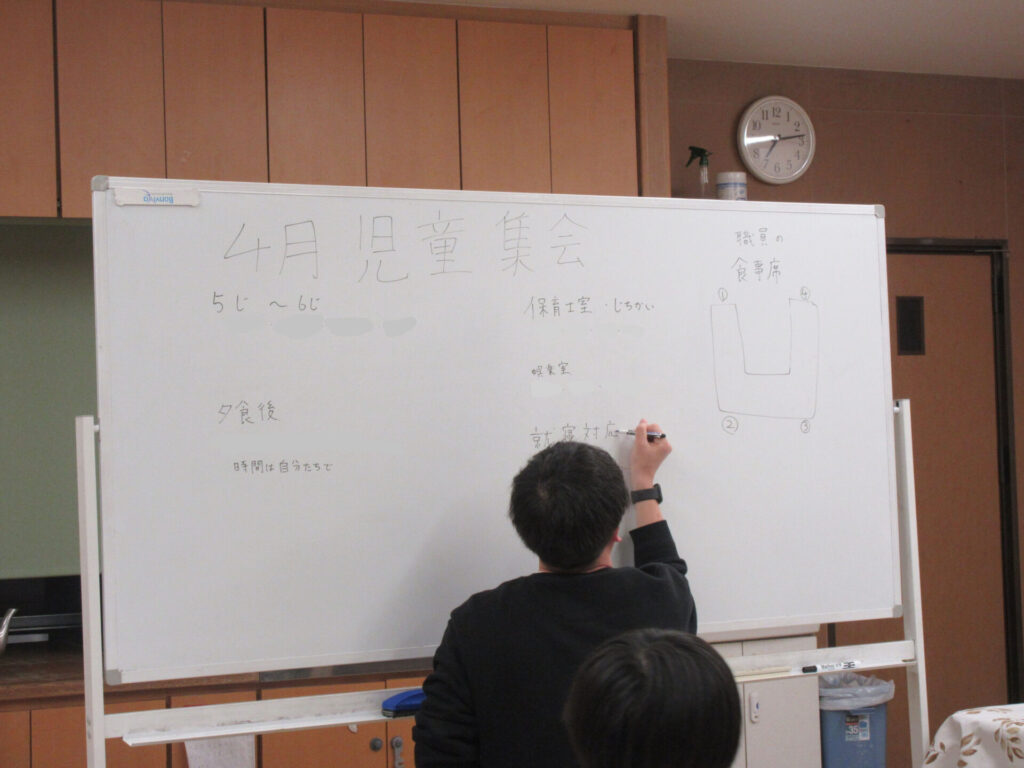 4月 児童集会
5じ 〜 6じ
夕食後
時間は自分たちで
保育士室・じちかい
娯楽室
就寝対応
職員の
食事席
① ④
② ③
Bonvivo
12 1 2 3 4 5 6 7 8 9 10 11
35